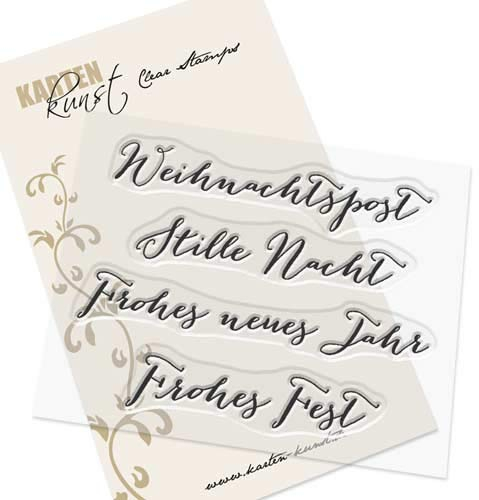 KARTEN
kunst Clear Stamps
Weihnachtspost
Stille Nacht
Frohes neues Jahr
Frohes Fest